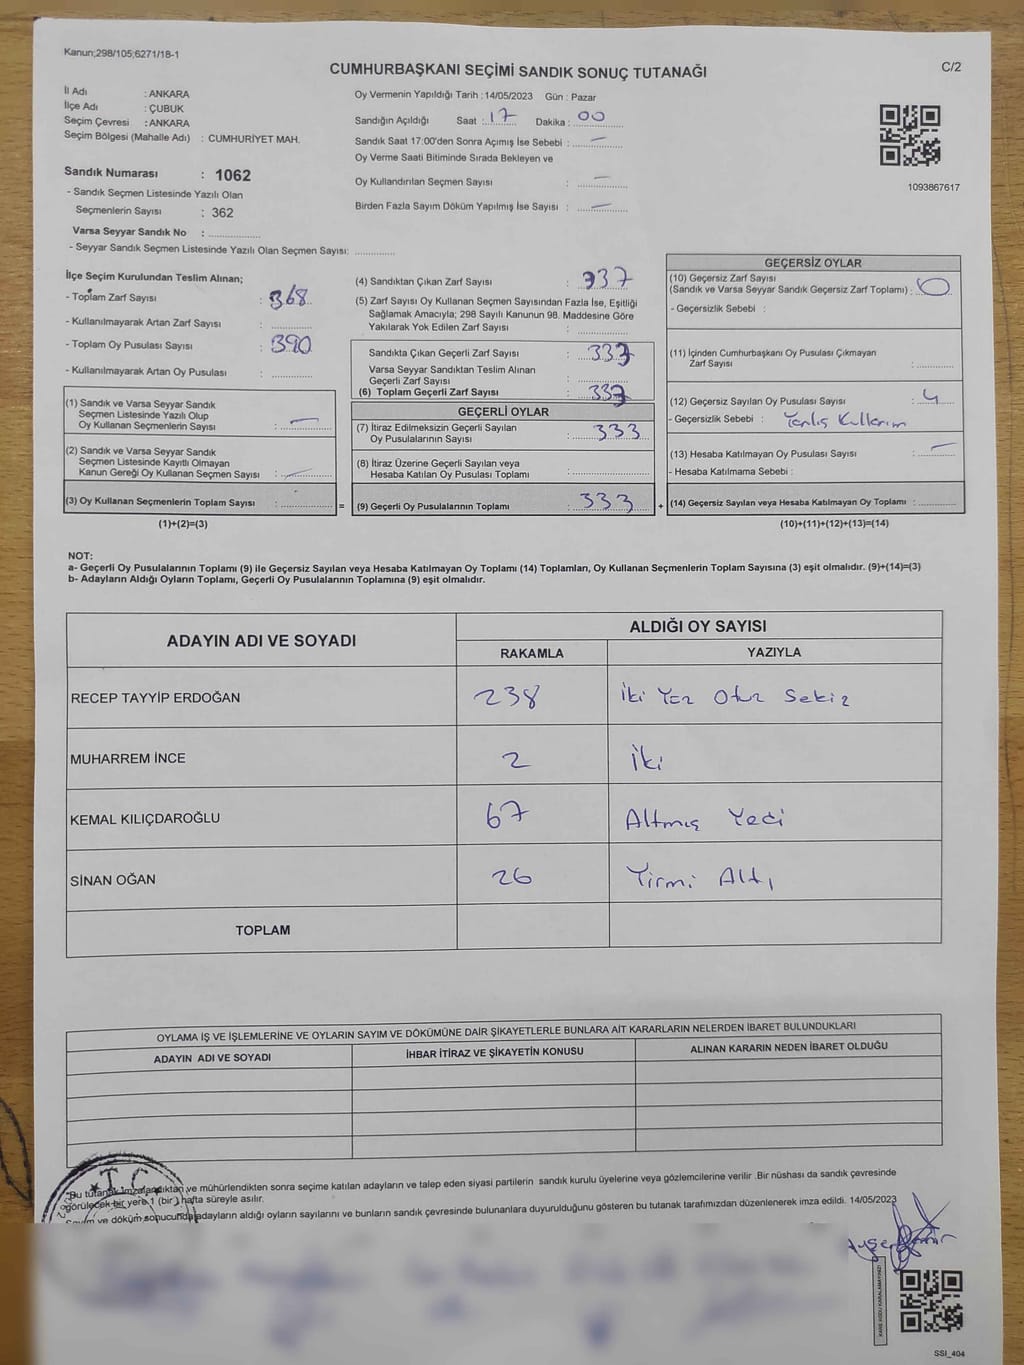 Kanun;298/105;6271/18-1
CUMHURBAŞKANI SEÇİMİ SANDIK SONUÇ TUTANAĞI
C/2
İl Adı : ANKARA
İlçe Adı : ÇUBUK
Seçim Çevresi : ANKARA
Seçim Bölgesi (Mahalle Adı) : CUMHURİYET MAH.
Sandık Numarası : 1062
- Sandık Seçmen Listesinde Yazılı Olan
Seçmenlerin Sayısı : 362
Varsa Seyyar Sandık No :
- Seyyar Sandık Seçmen Listesinde Yazılı Olan Seçmen Sayısı:
Oy Vermenin Yapıldığı Tarih :14/05/2023 Gün : Pazar
Sandığın Açıldığı Saat : 17 Dakika : 00
Sandık Saat 17:00'den Sonra Açımış İse Sebebi : —
Oy Verme Saati Bitiminde Sırada Bekleyen ve
Oy Kullandırılan Seçmen Sayısı : —
Birden Fazla Sayım Döküm Yapılmış İse Sayısı : —
1093867617
İlçe Seçim Kurulundan Teslim Alınan;
- Toplam Zarf Sayısı : 368
- Kullanılmayarak Artan Zarf Sayısı :
- Toplam Oy Pusulası Sayısı : 390
- Kullanılmayarak Artan Oy Pusulası :
(1) Sandık ve Varsa Seyyar Sandık
Seçmen Listesinde Yazılı Olup
Oy Kullanan Seçmenlerin Sayısı : —
(2) Sandık ve Varsa Seyyar Sandık
Seçmen Listesinde Kayıtlı Olmayan
Kanun Gereği Oy Kullanan Seçmen Sayısı : —
(3) Oy Kullanan Seçmenlerin Toplam Sayısı :
(1)+(2)=(3)
(4) Sandıktan Çıkan Zarf Sayısı : 337
(5) Zarf Sayısı Oy Kullanan Seçmen Sayısından Fazla İse, Eşitliği
Sağlamak Amacıyla; 298 Sayılı Kanunun 98. Maddesine Göre
Yakılarak Yok Edilen Zarf Sayısı :
Sandıkta Çıkan Geçerli Zarf Sayısı : 337
Varsa Seyyar Sandıktan Teslim Alınan
Geçerli Zarf Sayısı :
(6) Toplam Geçerli Zarf Sayısı : 337
GEÇERLİ OYLAR
(7) İtiraz Edilmeksizin Geçerli Sayılan
Oy Pusulalarının Sayısı : 333
(8) İtiraz Üzerine Geçerli Sayılan veya
Hesaba Katılan Oy Pusulası Toplamı :
= (9) Geçerli Oy Pusulalarının Toplamı : 333 +
GEÇERSİZ OYLAR
(10) Geçersiz Zarf Sayısı
(Sandık ve Varsa Seyyar Sandık Geçersiz Zarf Toplamı) : 0
- Geçersizlik Sebebi :
(11) İçinden Cumhurbaşkanı Oy Pusulası Çıkmayan
Zarf Sayısı :
(12) Geçersiz Sayılan Oy Pusulası Sayısı : 4
- Geçersizlik Sebebi : Yanlış Kullanım
(13) Hesaba Katılmayan Oy Pusulası Sayısı : —
- Hesaba Katılmama Sebebi :
(14) Geçersiz Sayılan veya Hesaba Katılmayan Oy Toplamı :
(10)+(11)+(12)+(13)=(14)
NOT:
a- Geçerli Oy Pusulalarının Toplamı (9) ile Geçersiz Sayılan veya Hesaba Katılmayan Oy Toplamı (14) Toplamları, Oy Kullanan Seçmenlerin Toplam Sayısına (3) eşit olmalıdır. (9)+(14)=(3)
b- Adayların Aldığı Oyların Toplamı, Geçerli Oy Pusulalarının Toplamına (9) eşit olmalıdır.
ADAYIN ADI VE SOYADI
ALDIĞI OY SAYISI
RAKAMLA YAZIYLA
RECEP TAYYİP ERDOĞAN 238 İki Yüz Otuz Sekiz
MUHARREM İNCE 2 İki
KEMAL KILIÇDAROĞLU 67 Altmış Yedi
SİNAN OĞAN 26 Yirmi Altı
TOPLAM
OYLAMA İŞ VE İŞLEMLERİNE VE OYLARIN SAYIM VE DÖKÜMÜNE DAİR ŞİKAYETLERLE BUNLARA AİT KARARLARIN NELERDEN İBARET BULUNDUKLARI
ADAYIN ADI VE SOYADI İHBAR İTİRAZ VE ŞİKAYETİN KONUSU ALINAN KARARIN NEDEN İBARET OLDUĞU
T.C.
Bu tutanak imzalandıktan ve mühürlendikten sonra seçime katılan adayların ve talep eden siyasi partilerin sandık kurulu üyelerine veya gözlemcilerine verilir .Bir nüshası da sandık çevresinde
görülecek bir yere 1 (bir ) hafta süreyle asılır.
ve döküm sonucunda adayların aldığı oyların sayılarını ve bunların sandık çevresinde bulunanlara duyurulduğunu gösteren bu tutanak tarafımızdan düzenlenerek imza edildi. 14/05/2023
KARE KODU KARALAMAYINIZ!
SSI_404